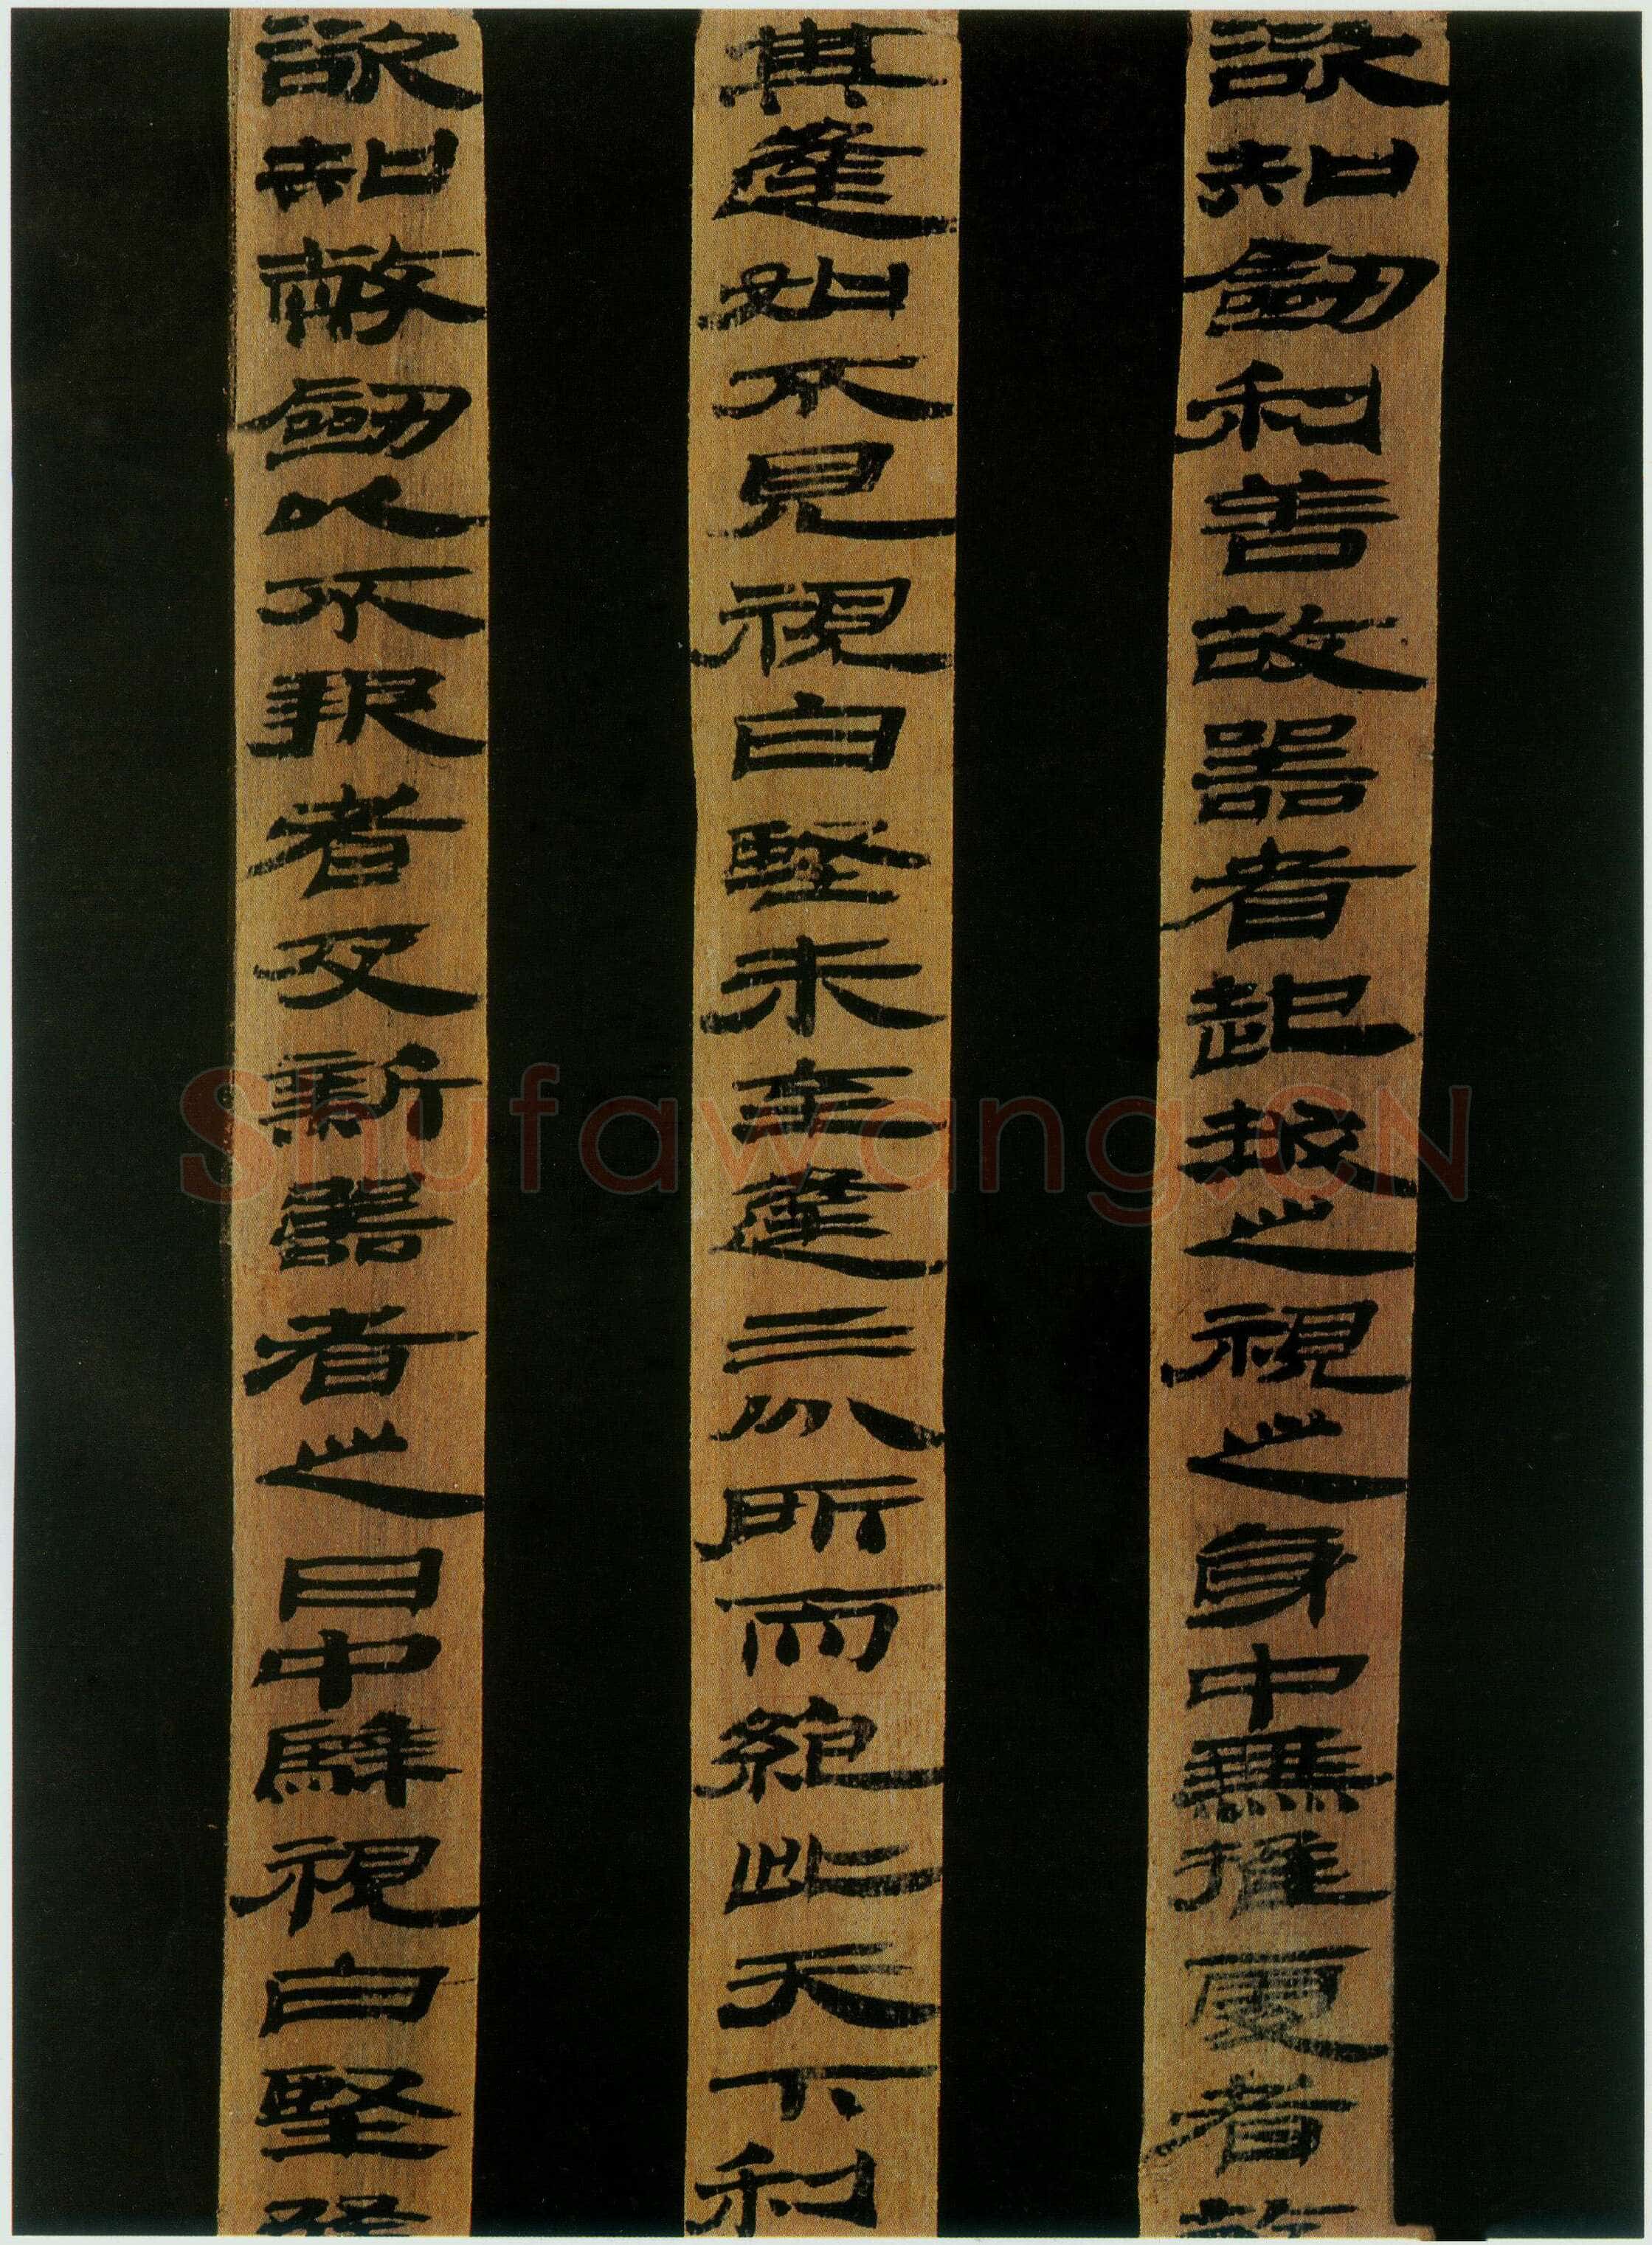 欲知劍利善故器者起拔之視之身中無推處者故
其逢如不見視白堅未至逢三分所而絕此天下利
欲知幣劍以不報者及新器者之日中騂視白堅
Shufawang.CN